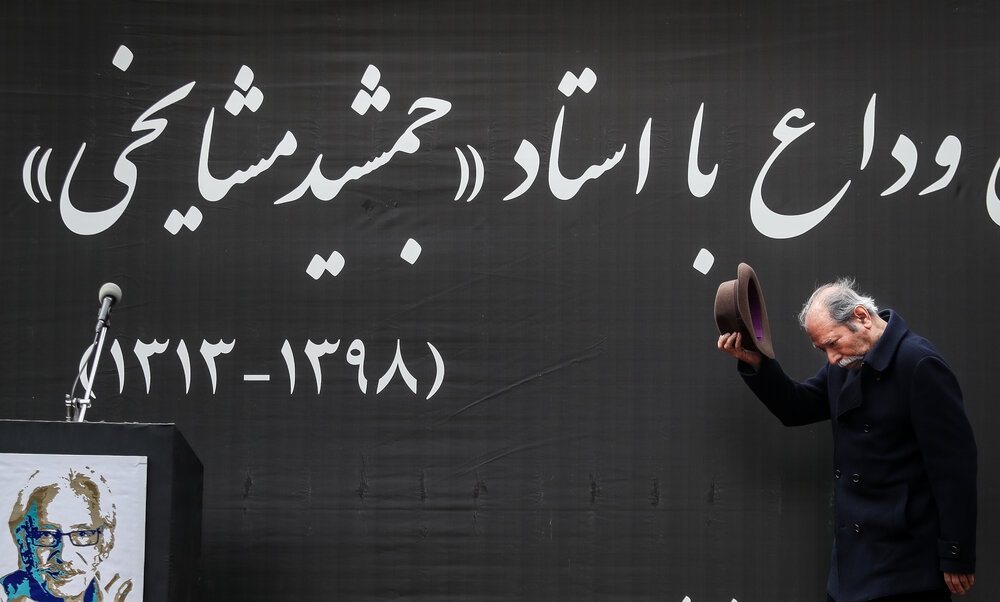 وداع با استاد «جمشید مشایخی»
(۱۳۱۳-۱۳۹۸)